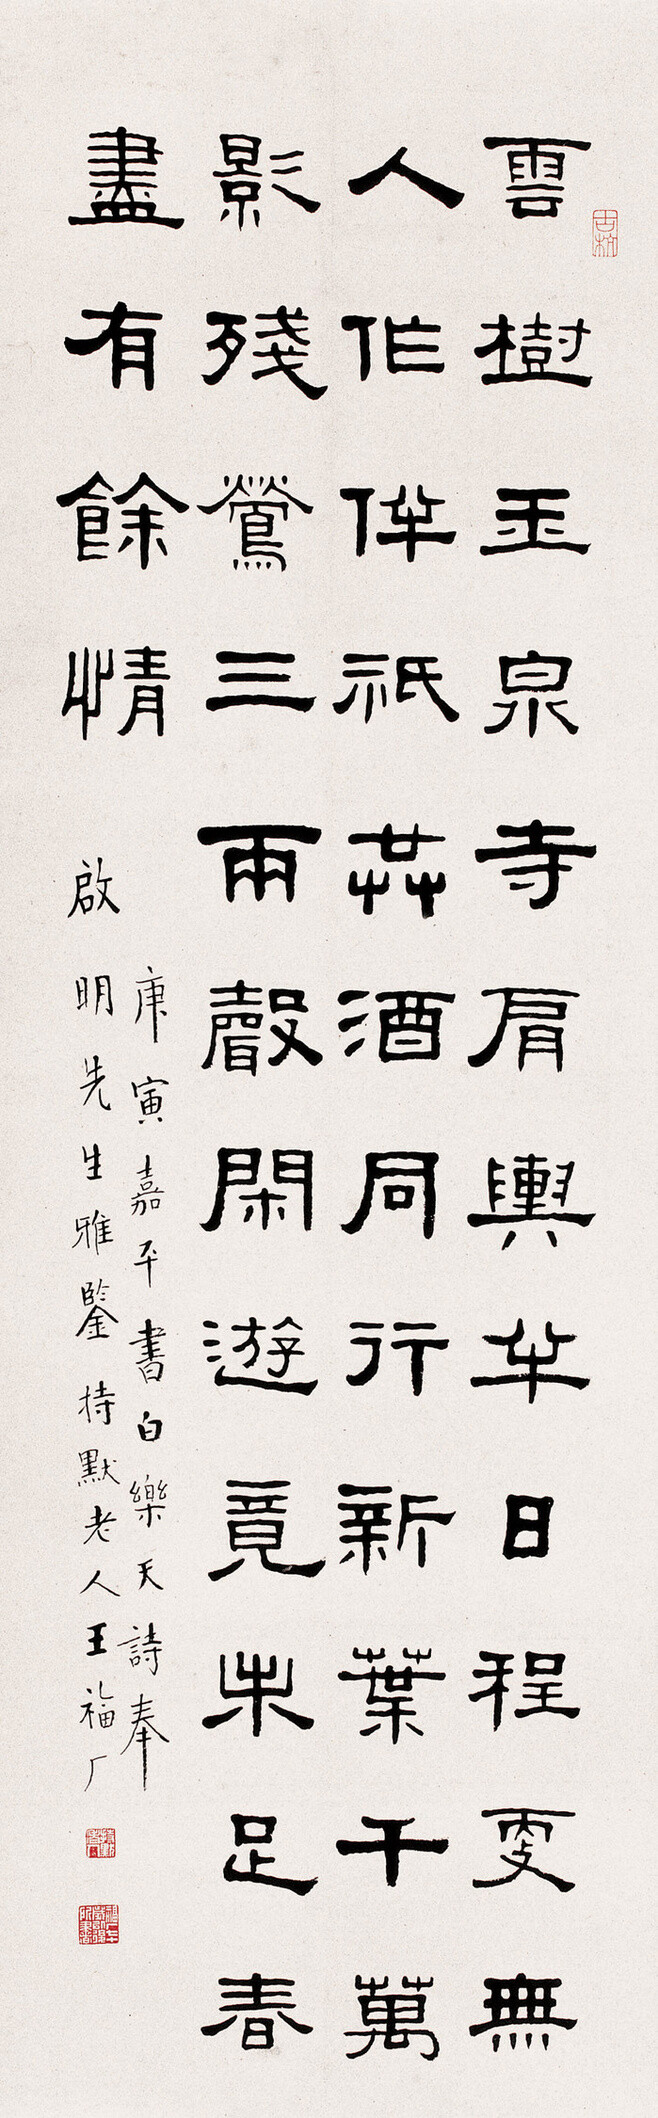 雲樹玉泉寺肩輿半日程更無
人作伴祇共酒同行新葉千萬
影殘鶯三兩聲閑遊竟未足春
盡有餘情
庚寅嘉平書白樂天詩奉
啟明先生雅鑒持默老人王福厂
古杭